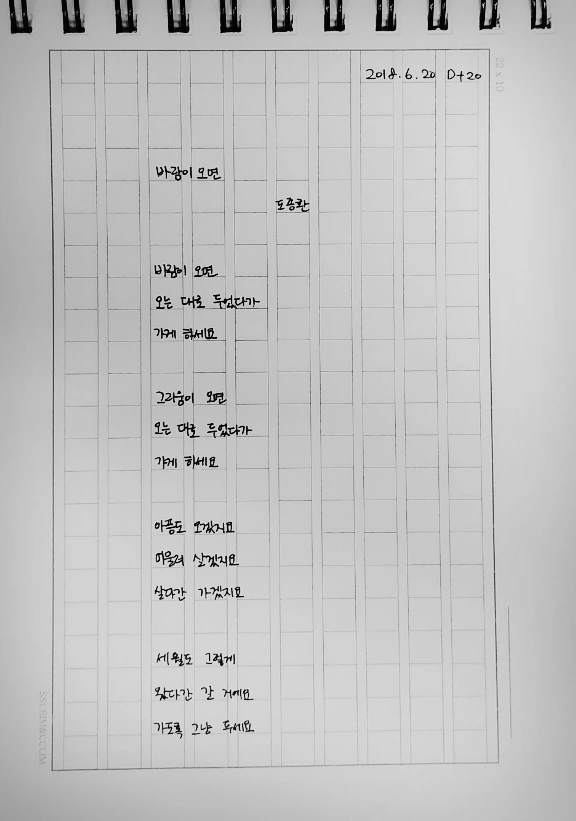 2018.6.20 D+20
22 x 10
바람이 오면
도종환
바람이 오면
오는 대로 두었다가
가게 하세요
그리움이 오면
오는 대로 두었다가
가게 하세요
아픔도 오겠지요
머물러 살겠지요
살다간 가겠지요
세월도 그렇게
왔다간 갈 거예요
가도록 그냥 두세요